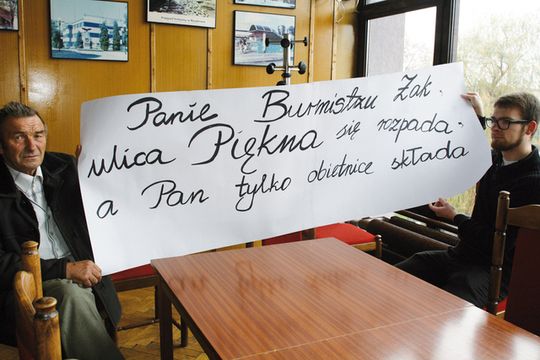 Panie Burmistrzu Żak.
ulica Piękna się rozpada.
a Pan tylko obietnice składa